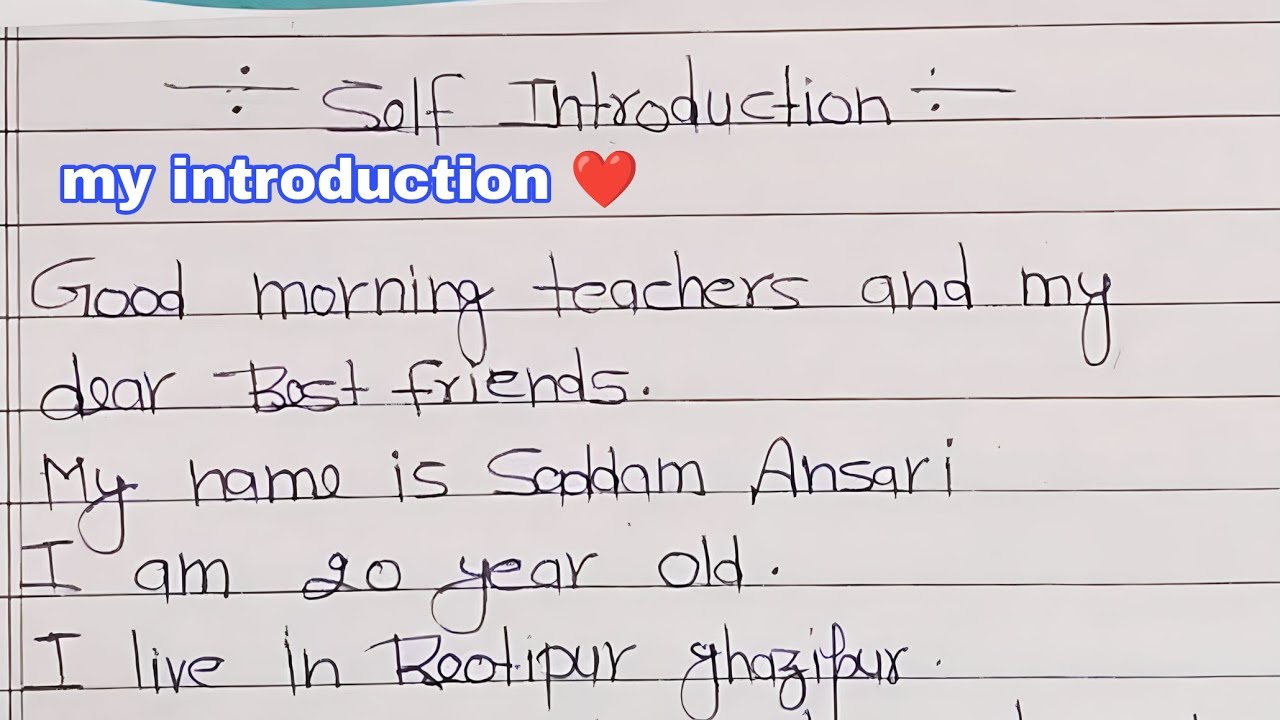 ÷ Self Introduction ÷
my introduction ❤️
Good morning teachers and my
dear Best friends.
My name is Saddam Ansari
I am 20 year old.
I live in Reotipur ghazipur.